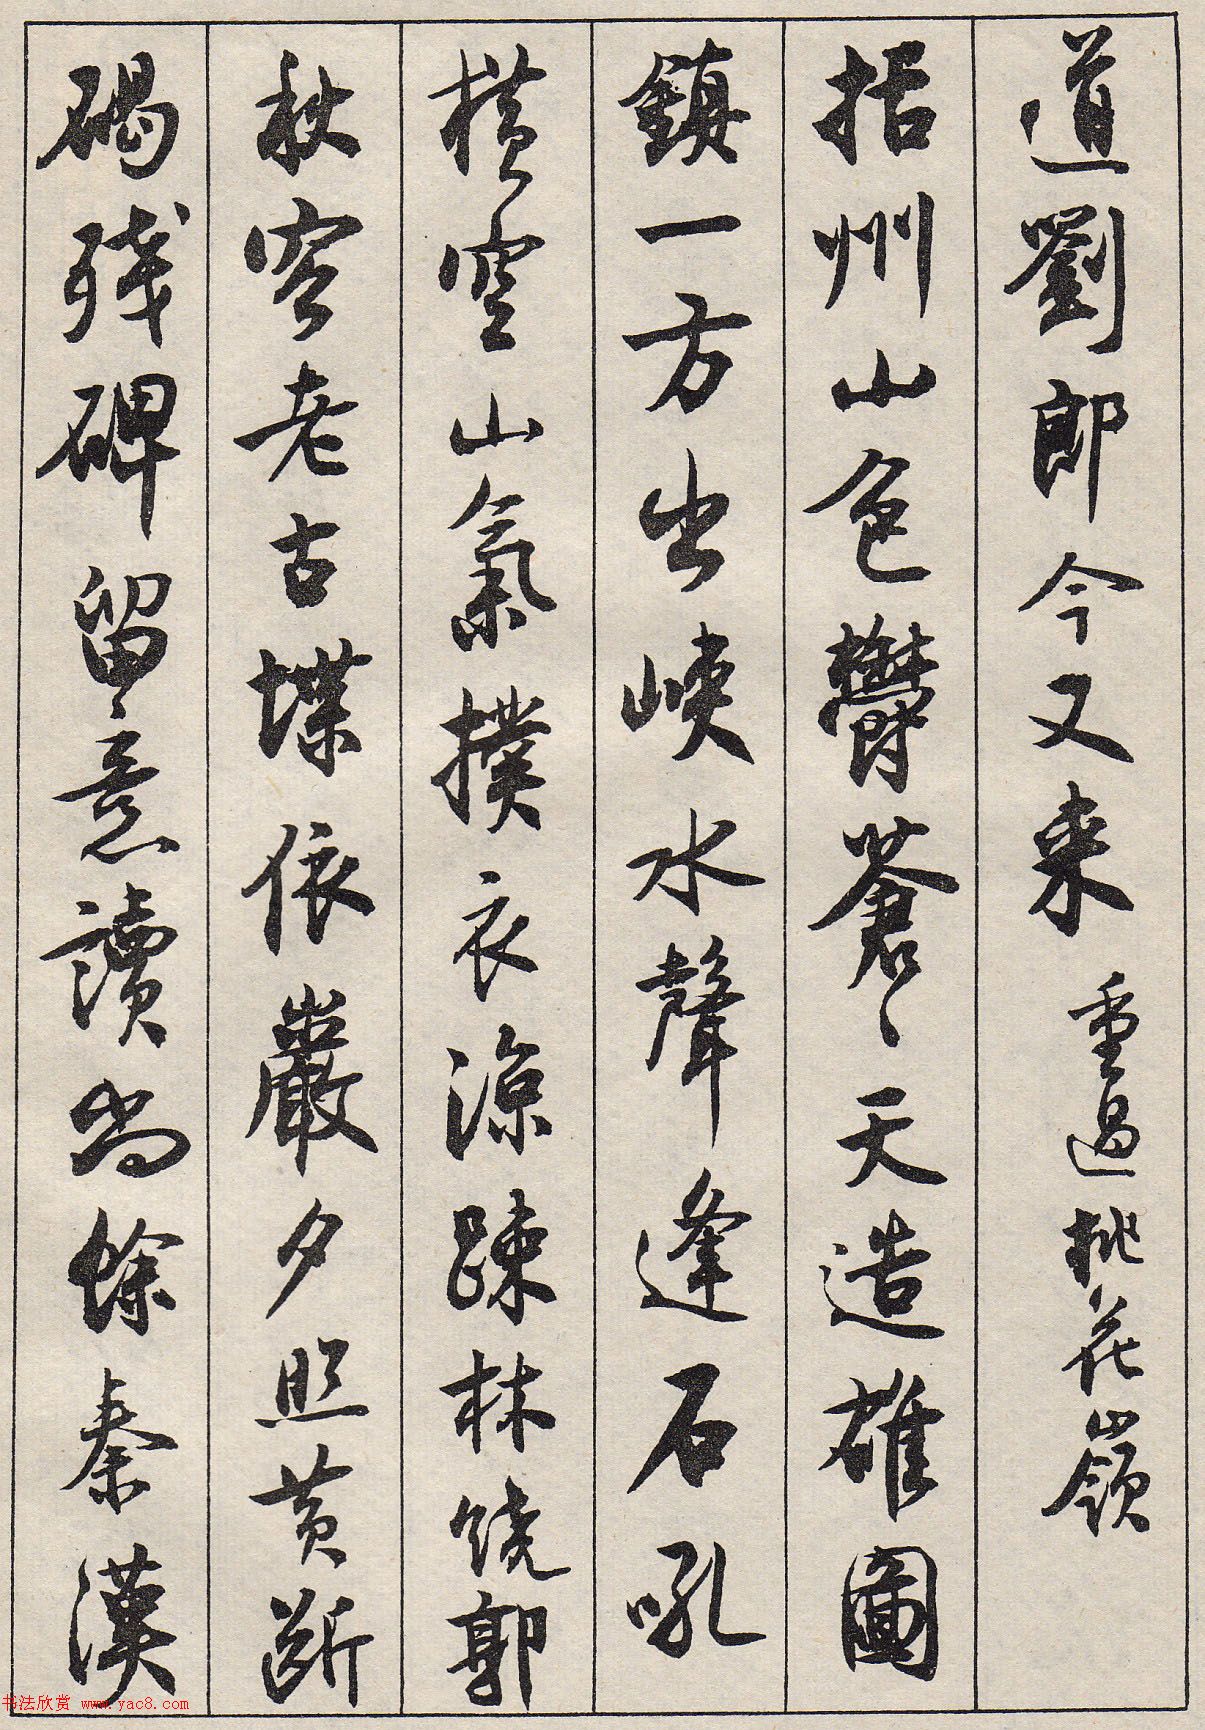 道劉郎今又来 重過桃花嶺
括州山色鬱蒼〻天造雄圖
鎮一方出峽水聲逢石吼
橫空山氣撲衣涼踈林饒郭
秋容老古堞依巖夕照黄斷
碣殘碑留意讀尚餘秦漢
书法欣赏 www.yac8.com